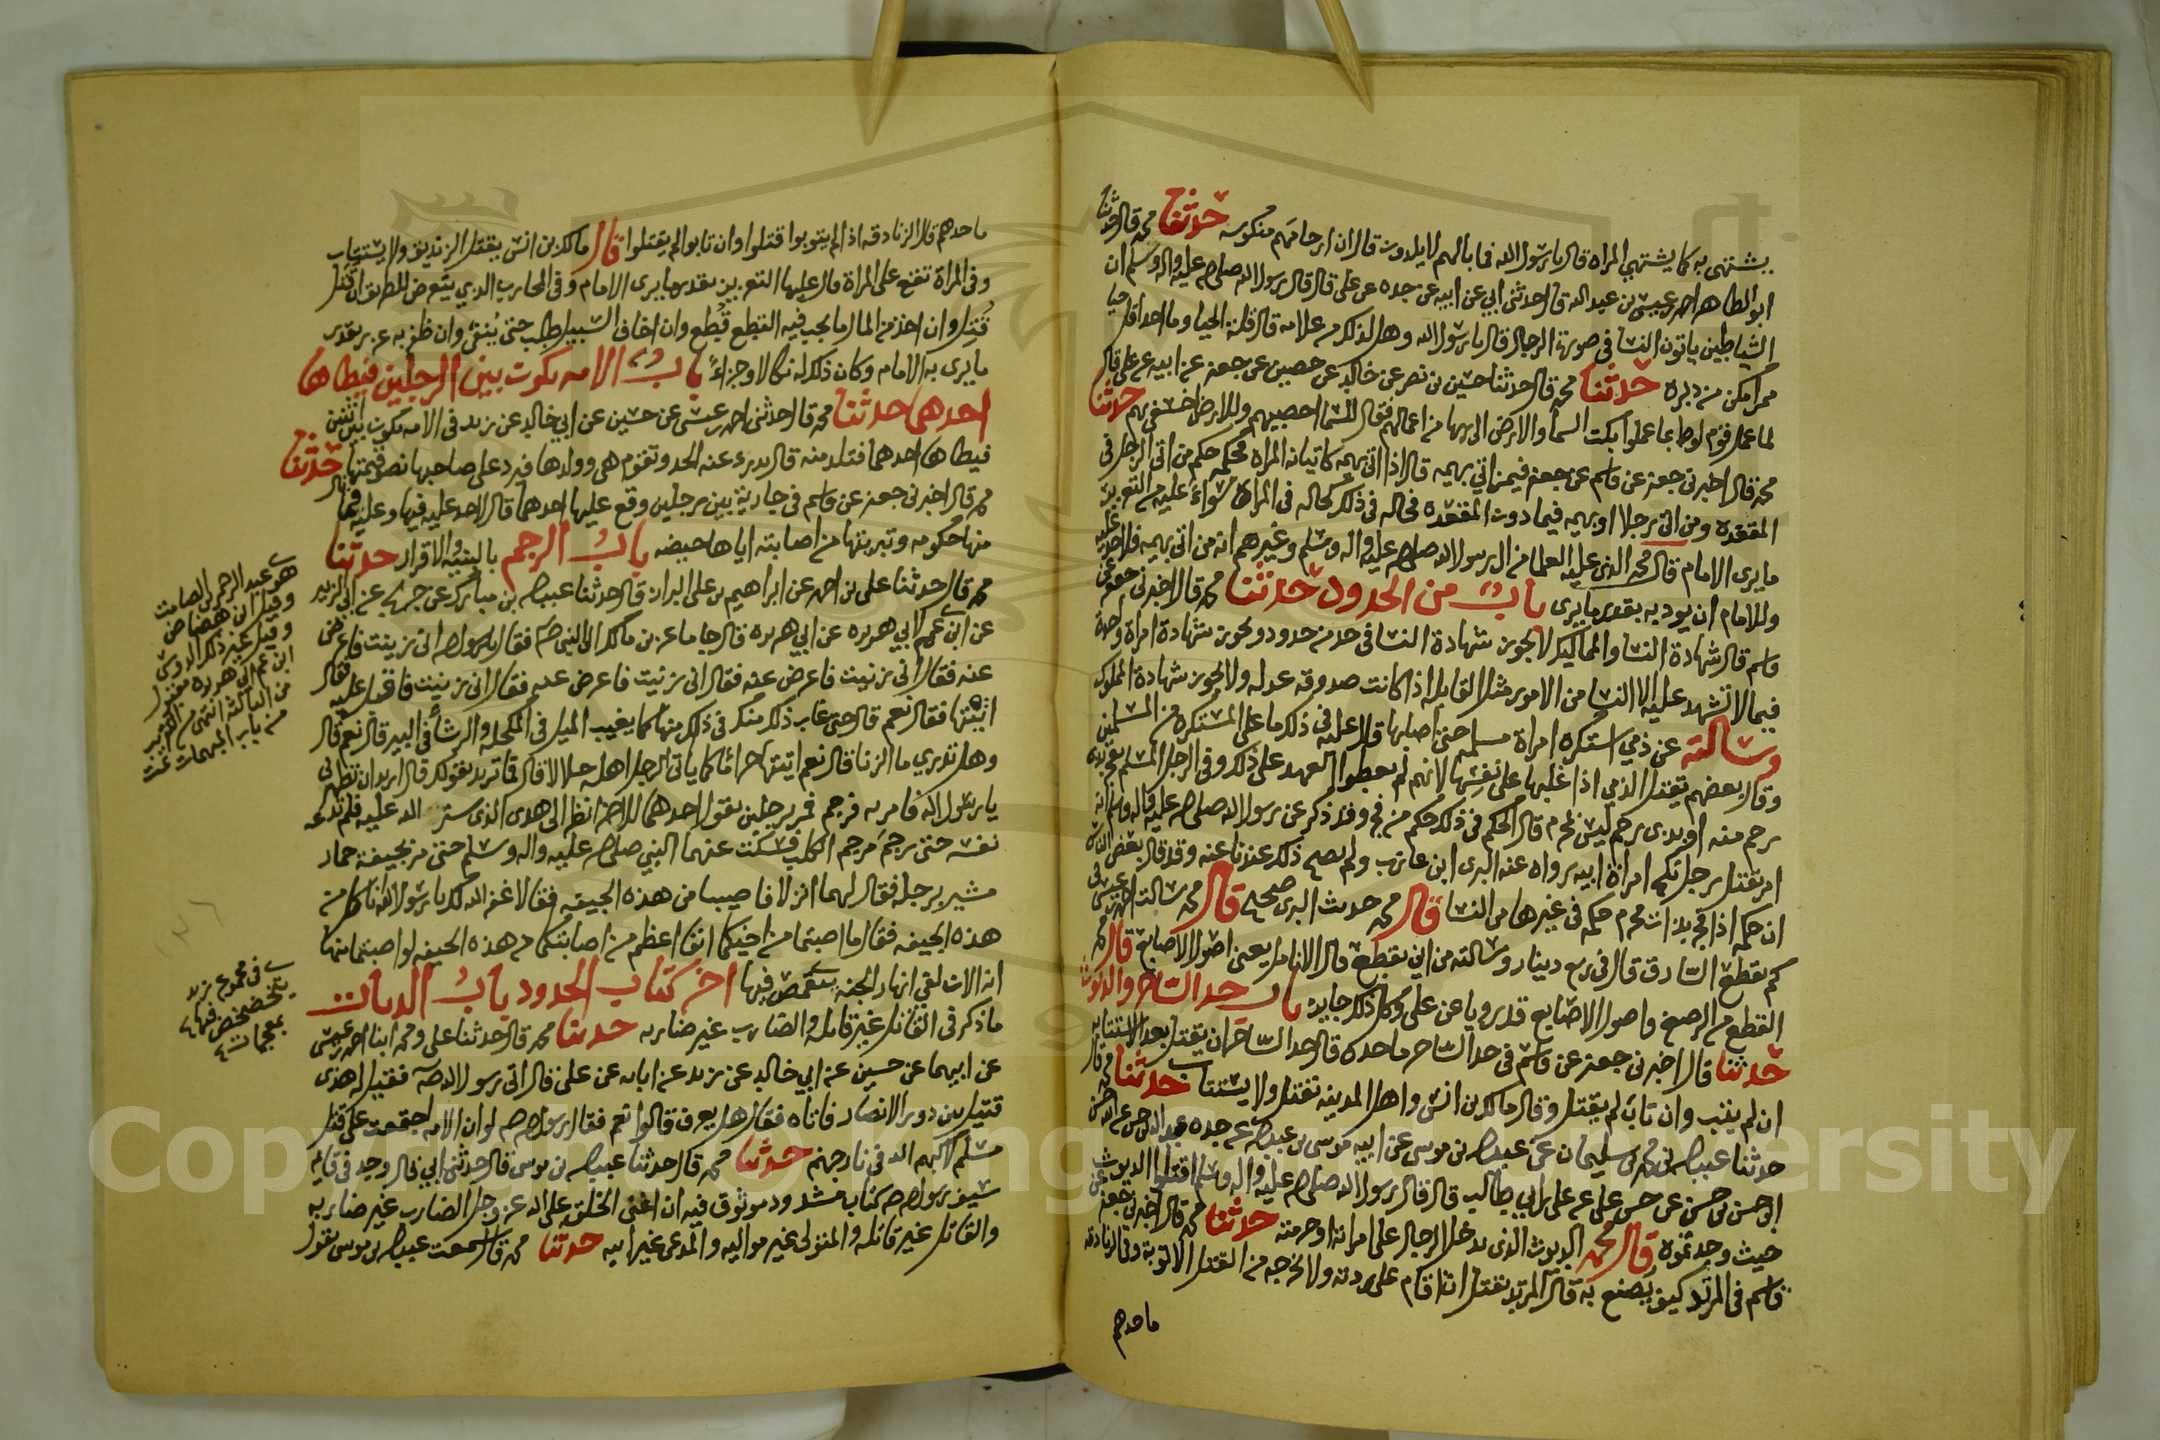 يشتهى به كما يشتهي المراه قال يا رسول الله فما بالهم لا يلدون قال ان ارحامهم منكوسه حدثنا محمد قال حدثنا
ابو الطاهر احمد بن عيسى بن عبد الله قال حدثني ابي عن ابيه عن جده عن علي قال قال رسول الله صلى الله عليه واله وسلم ان
الشياطين ياتون النسا في صورة الرجال قال يا رسول الله وهل لذلك من علامه قال قلة الحيا وما احد اقل حيا
ممن امكن من دبره حدثنا محمد قال حدثنا حسين بن نصر عن خالد عن حصين عن جعفر عن ابيه عن علي قال
لما عمل قوم لوط بما عملوا بكت السماء والارض الى ربها من اعمالهم فقال للسما احصبيهم وللارض اخسفي بهم حدثنا
محمد قال اخبرني جعفر عن قاسم عن جعفر فيمن اتى بهيمه قال اذا اتى بهيمه كاتيانه المراه فحكمه حكم من اتى الرجل في
المقعده ومن اتى رجلا او بهيمه فيما دون المقعده فحاله في ذلك كحاله في المراه سواء عليه من التعزير
ما يرى الامام قال محمد الذي عليه العلما من ال رسول الله صلى الله عليه واله وسلم وغيرهم انه من اتى بهيمه فلا حد عليه
وللامام ان يوديه بقدر ما يرى باب من الحدود حدثنا محمد قال اخبرني جعفر عن
قاسم قال شهادة النسا والمماليك لا يجوز شهادة النسا في حد من حدود ويجوز شهادة امراة واحدة
فيما لا تشهد عليه الا النسا من الامور مثل القابله اذا كانت صدوقه عدله ولا يجوز شهادة المملوك
وسالته عن ذمي استكره امراة مسلمه حتى اصابها قال عليه في ذلك ما على المستكره من المسلمين
وقال بعضهم يقتل الذمي اذا غلبها على نفسها لانهم لم يعطوا العهد على ذلك وفي الرجل المسلم يفجر بذي
رحم منه او بذي رحم ليس بمحرم قال الحكم في ذلك حكم من فجر وقد ذكر عن رسول الله صلى الله عليه واله وسلم انه
امر بقتل رجل نكح امراة ابيه رواه عنه البرى ابن عازب ولم يصح ذلك عندنا عنه وقد قال بعض الناس
ان حكمه اذا فجر بذات محرم حكمه في غيرها من النسا قال محمد حديث البرى صحيح قال محمد سالت احمد بن عيسى في
كم يقطع السارق قال في ربع دينار وسالته من اين يقطع قال الانامل يعني اصول الاصابع قال محمد
القطع من الرسغ واصول الاصابع قد رويا عن علي وكل ذلك جايز باب حد الساحر والديوث
حدثنا قال اخبرني جعفر عن قاسم في حد الساحر ما حده قال حد الساحر ان يقتل بعد الاستتابه
ان لم يتب وان تاب لم يقتل وقال مالك بن انس واهل المدينه تقتل ولا يستتاب حدثنا محمد قال
حدثنا عبيد الله بن محمد بن سليمان عن عبد الله بن موسى عن ابيه موسى بن عبد الله عن جده عبد الله بن حسن عن ابيه الحسن
ابن حسن بن حسن عن حسن بن علي عن علي بن ابي طالب قال قال رسول الله صلى الله عليه واله وسلم اقتلوا الديوث
حيث وجدتموه قال محمد الديوث الذي يدخل الرجال على امراته او حرمته حدثنا محمد قال اخبرني جعفر عن
قاسم في المرتد كيف يصنع به قال المرتد يقتل ان اقام على ردته ولا يخرجه من القتل الا التوبة وفي الزنادقه
ما حدهم
ما حدهم قال الزنادقه اذا لم يتوبوا قتلوا وان تابوا لم يقتلوا قال مالك بن انس يقتل الزنديق ولا يستتاب
وفي المراة تقع على المراة قال عليها التعزير بقدر ما يرى الامام وفي المحارب الذي يتعرض للطريق ان قتل
قتل وان اخذ من المال ما يجب فيه القطع قطع وان اخاف السبيل طلب حتى ينفى وان ظفر به عزر بقدر
ما يرى به الامام وكان ذلك له نكالا وجزاء باب الامه يكون بين الرجلين فيطاها
احدهما حدثنا محمد قال حدثني احمد بن عيسى عن حسين عن ابي خالد عن زيد في الامه يكون بين اثنين
فيطاها احدهما فتلد منه قال يدرء عنه الحد وتقوم هي وولدها فيرد على صاحبها نصف قيمتها حدثنا
محمد قال اخبرني جعفر عن قاسم في جارية بين رجلين وقع عليها احدهما قال لا حد عليه فيها وعليه فيما نال
منها حكومه وتبريتها من اصابته اياها حيضه باب الرجم بالبينه والاقرار حدثنا
محمد قال حدثنا علي بن احمد عن ابراهيم بن علي البراز قال حدثنا عبيد الله بن مبارك عن جريج عن ابي الزبير
عن ابن عم لابي هريره عن ابي هريره قال جا ماعز بن مالك الى النبي صلم فقال يا رسول الله اني زنيت فاعرض
عنه فقال اني زنيت فاعرض عنه فقال اني زنيت فاعرض عنه فقال اني زنيت فاقبل عليه فقال
انكتها فقال نعم قال حتى غاب ذلك منك في ذلك منها كما يغيب الميل في المكحله والرشا في البير قال نعم قال
وهل تدري ما الزنا قال نعم اتيتها حراما كما ياتي الرجل اهله حلالا قال فما تريد بقولك قال اريد ان تطهرني
يا رسول الله فامر به فرجم فمر برجلين يقول احدهما للاخر انظر الى هذى الذي ستر الله عليه فلم تدعه
نفسه حتى رجم مرجم الكلب فسكت عنهما النبي صلى الله عليه واله وسلم حتى مر بجيفة حمار
مشير برجله فقال لهما انزلا فاصيبا من هذه الجيفه فقالا غفر الله لك يا رسول الله اناكل من
هذه الجيفه فقال ما اصبتما من اخيكما انفا اعظم من اصابتكما من هذه الجيفه لو اصبتما منها
انه الان لفي انهار الجنه يتقمص فيها اخر كتاب الحدود باب الديات
ما ذكر في القاتل غير قاتله والضارب غير ضاربه حدثنا محمد قال حدثنا علي ومحمد ابنا احمد بن عيسى
عن ابيهما عن حسين عن ابي خالد عن زيد عن ابائه عن علي قال اتي رسول الله صلم فقيل هذى
قتيل بين دور الانصار فاتاه فقال هل يعرف قالوا نعم فقال رسول الله صلم لو ان الامه اجتمعت على قتل
مسلم لاكبهم الله في نار جهنم حدثنا محمد قال حدثنا عبيد الله بن موسى قال حدثني ابي قال وجد في قايم
سيف رسول الله صلم كتاب مشدود موثوق فيه ان اعتى الخلق على الله عز وجل الضارب غير ضاربه
والقاتل غير قاتله والمتولى غير مواليه والمدعى غير ابيه حدثنا محمد قال سمعت عبيد الله بن موسى يقول
هو عبد الرحمن الصامت
وقيل ابن هضاض
وقيل غير ذلك الدوسي
ابن عم ابي هريره مقبول
من الثالثة انتهى من التقريب
من باب المبهمات تمت
في مجموع زيد
يتخضخض فيها
بمعجمات